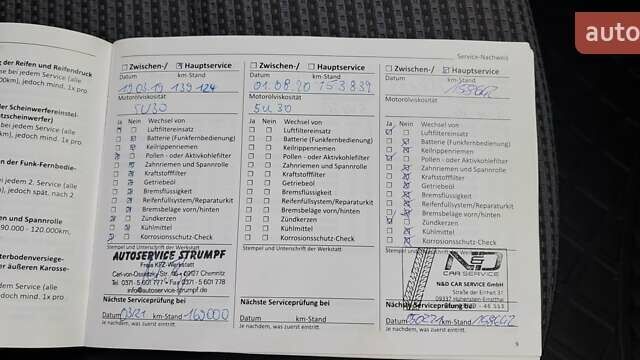 auto
Service-Nachweis
ng der Reifen und Reifendruck
e bei jedem Service (alle
0km), jedoch mind. 1x pro
der Scheinwerfereinstel-
tscheinwerfer)
jedem Service (alle
jedoch mind. 1x pro
on der Funk-Fernbedie-
. jedem 2. Service (alle
), jedoch spät. nach 2
und Spannrolle
90.000 - 120.000km,
terbodenversiege-
äußeren Karosse-
n Service (alle
doch mind. 1x
Zwischen-/ Hauptservice
Datum km-Stand
19.03.19 139 124
Motorölviskosität
5W30
Ja Nein Wechsel von
Luftfiltereinsatz
Batterie (Funkfernbedienung)
Keilrippenriemen
Pollen - oder Aktivkohlefilter
Zahnriemen und Spannrolle
Kraftstofffilter
Getriebeöl
Bremsflüssigkeit
Reifenfüllsystem/Reparaturkit
Bremsbeläge vorn/hinten
Zündkerzen
Kühlmittel
Korrosionsschutz-Check
Stempel und Unterschrift der Werkstatt
AUTOSERVICE STRUMPF
Freie KFZ-Werkstatt
Tel. 0371-5 601 777 • Fax 0371-5 601 778
info@autoservice-strumpf.de
Nächste Serviceprüfung bei
Datum 03/21 km-Stand 160000
Je nachdem, was zuerst eintritt.
Zwischen-/ Hauptservice
Datum km-Stand
01.08.20 153839
Motorölviskosität
5W30
Ja Nein Wechsel von
Luftfiltereinsatz
Batterie (Funkfernbedienung)
Keilrippenriemen
Pollen - oder Aktivkohlefilter
Zahnriemen und Spannrolle
Kraftstofffilter
Getriebeöl
Bremsflüssigkeit
Reifenfüllsystem/Reparaturkit
Bremsbeläge vorn/hinten
Zündkerzen
Kühlmittel
Korrosionsschutz-Check
Stempel und Unterschrift der Werkstatt
Nächste Serviceprüfung bei
Datum km-Stand
Je nachdem, was zuerst eintritt.
Zwischen-/ Hauptservice
Datum km-Stand
Motorölviskosität
Ja Nein Wechsel von
Luftfiltereinsatz
Batterie (Funkfernbedienung)
Keilrippenriemen
Pollen - oder Aktivkohlefilter
Zahnriemen und Spannrolle
Kraftstofffilter
Getriebeöl
Bremsflüssigkeit
Reifenfüllsystem/Reparaturkit
Bremsbeläge vorn/hinten
Zündkerzen
Kühlmittel
Korrosionsschutz-Check
Stempel und Unterschrift der Werkstatt
N&D
CAR SERVICE
N&D CAR SERVICE GmbH
09337 Hohenstein-Ernstthal
Nächste Serviceprüfung bei
Datum km-Stand
Je nachdem, was zuerst eintritt.
9